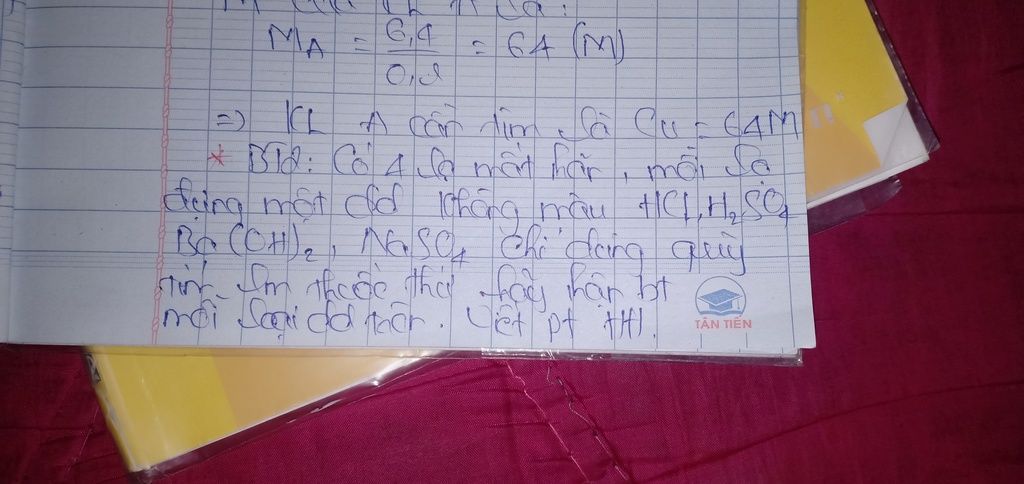 MA = 6,4 / 0,1 = 64 (M)
=> KL A cần tìm là Cu = 64M
* BT2: Có 4 lọ mất hãn, mỗi lọ
đựng một dd không màu HCl, H₂SO₄
Ba(OH)₂, NaSO₄ chỉ dùng quỳ
tím làm thuốc thử hãy nhận bt
mỗi loại dd trên. Viết pt
TÂN TIẾN